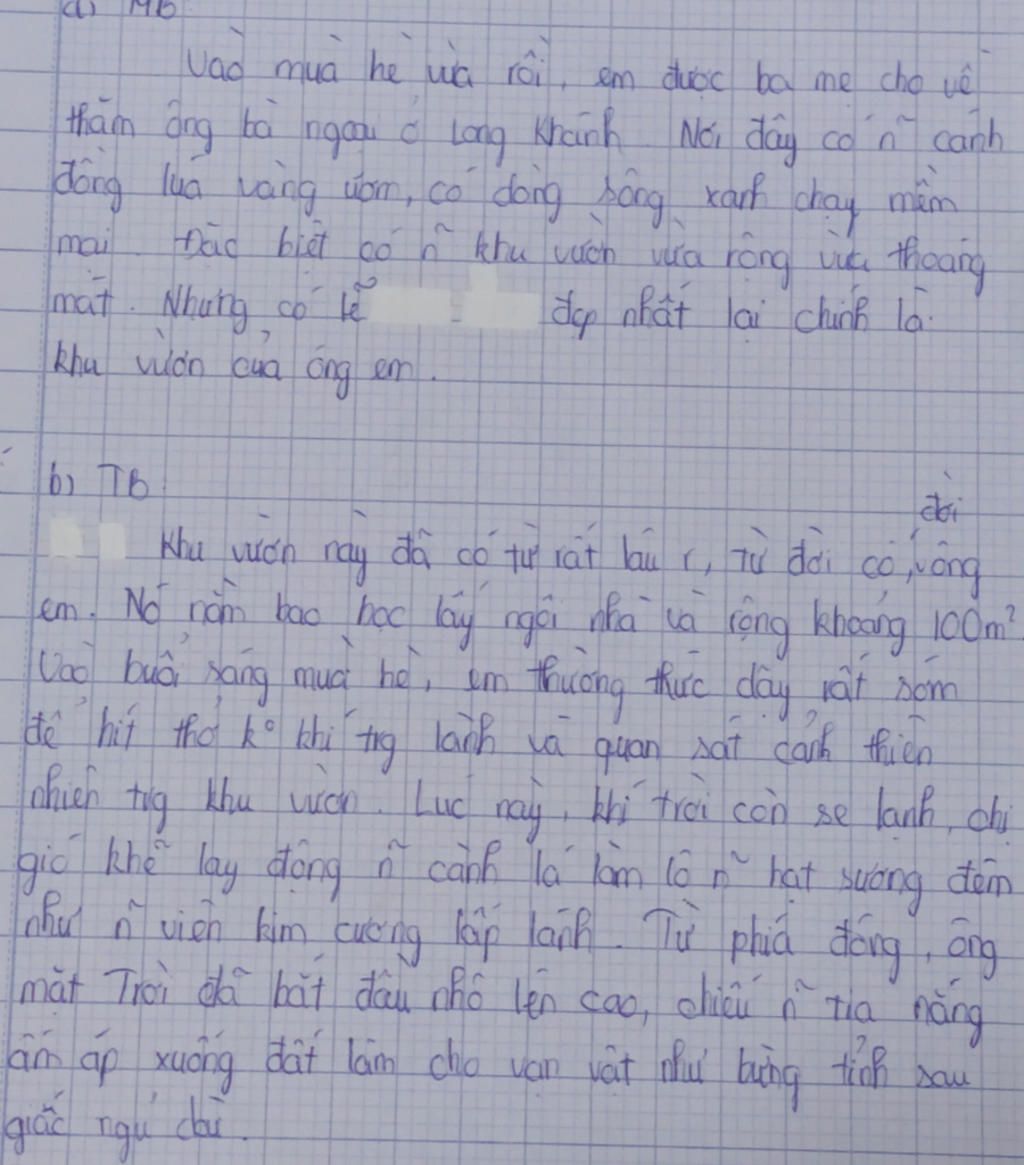 a) MB
Vào mùa hè vừa rồi, em được ba mẹ cho về
thăm ông bà ngoại ở Long Khánh. Nơi đây có n~ cánh
đồng lúa vàng ươm, có dòng sông xanh chảy mềm
mại. Đặc biệt có n~ khu vườn vừa rộng vừa thoáng
mát. Nhưng có lẽ đẹp nhất lại chính là
khu vườn của ông em.
b) TB
đời
Khu vườn này đã có từ rất lâu r, từ đời cố, ông
em. Nó nằm bao bọc lấy ngôi nhà và rộng khoảng 100m²
Vào buổi sáng mùa hè, em thường thức dậy rất sớm
để hít thở kº khí trg lành và quan sát cảnh thiên
nhiên trg khu vườn. Lúc này, khí trời còn se lạnh, chị
gió khẽ lay động n~ cành lá làm lộ n~ hạt sương đêm
như n~ viên kim cương lấp lánh. Từ phía đông, ông
mặt Trời đã bắt đầu nhô lên cao, chiếu n~ tia nắng
ấm áp xuống đất làm cho vạn vật như bừng tỉnh sau
giấc ngủ dài.